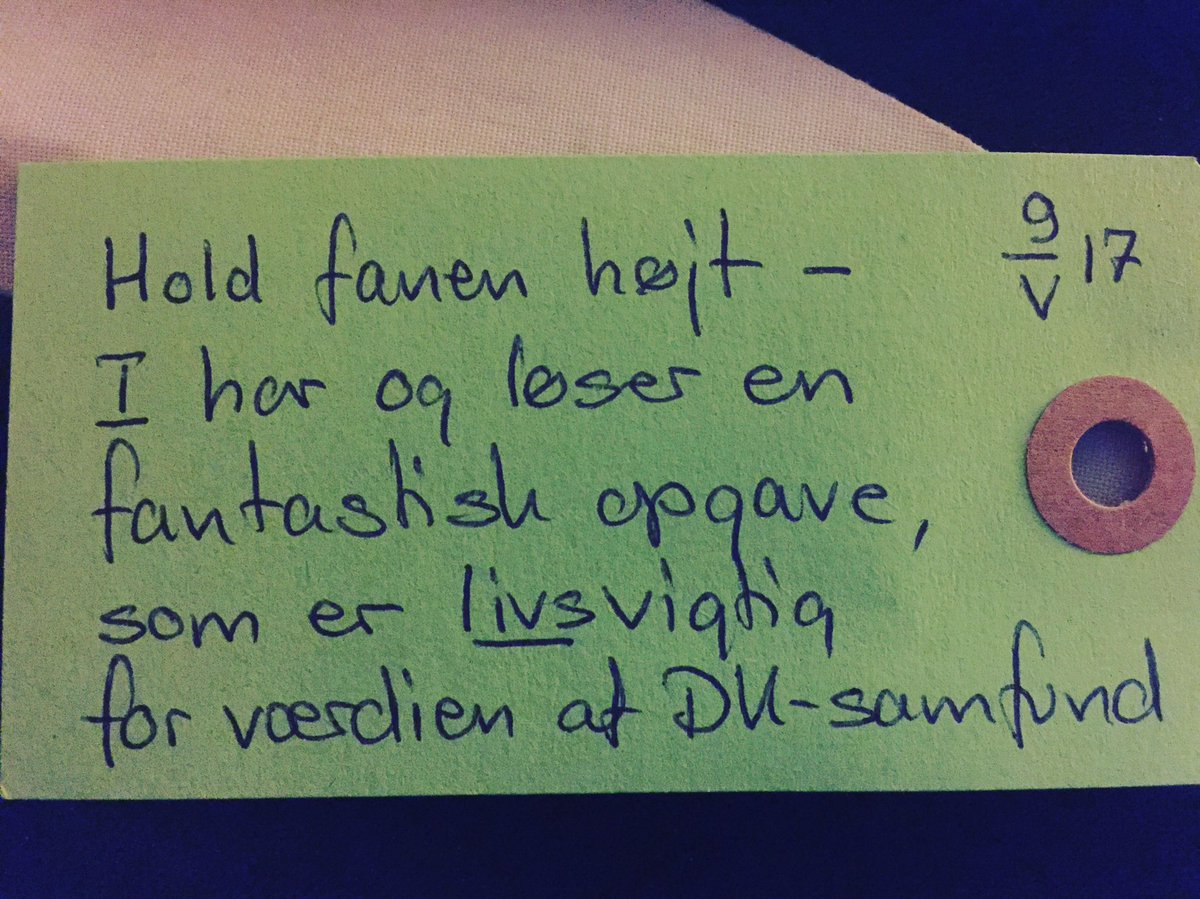 Hold fanen højt -
9/V 17
I har og løser en
fantastisk opgave,
som er livsvigtig
for værdien af DK-samfund